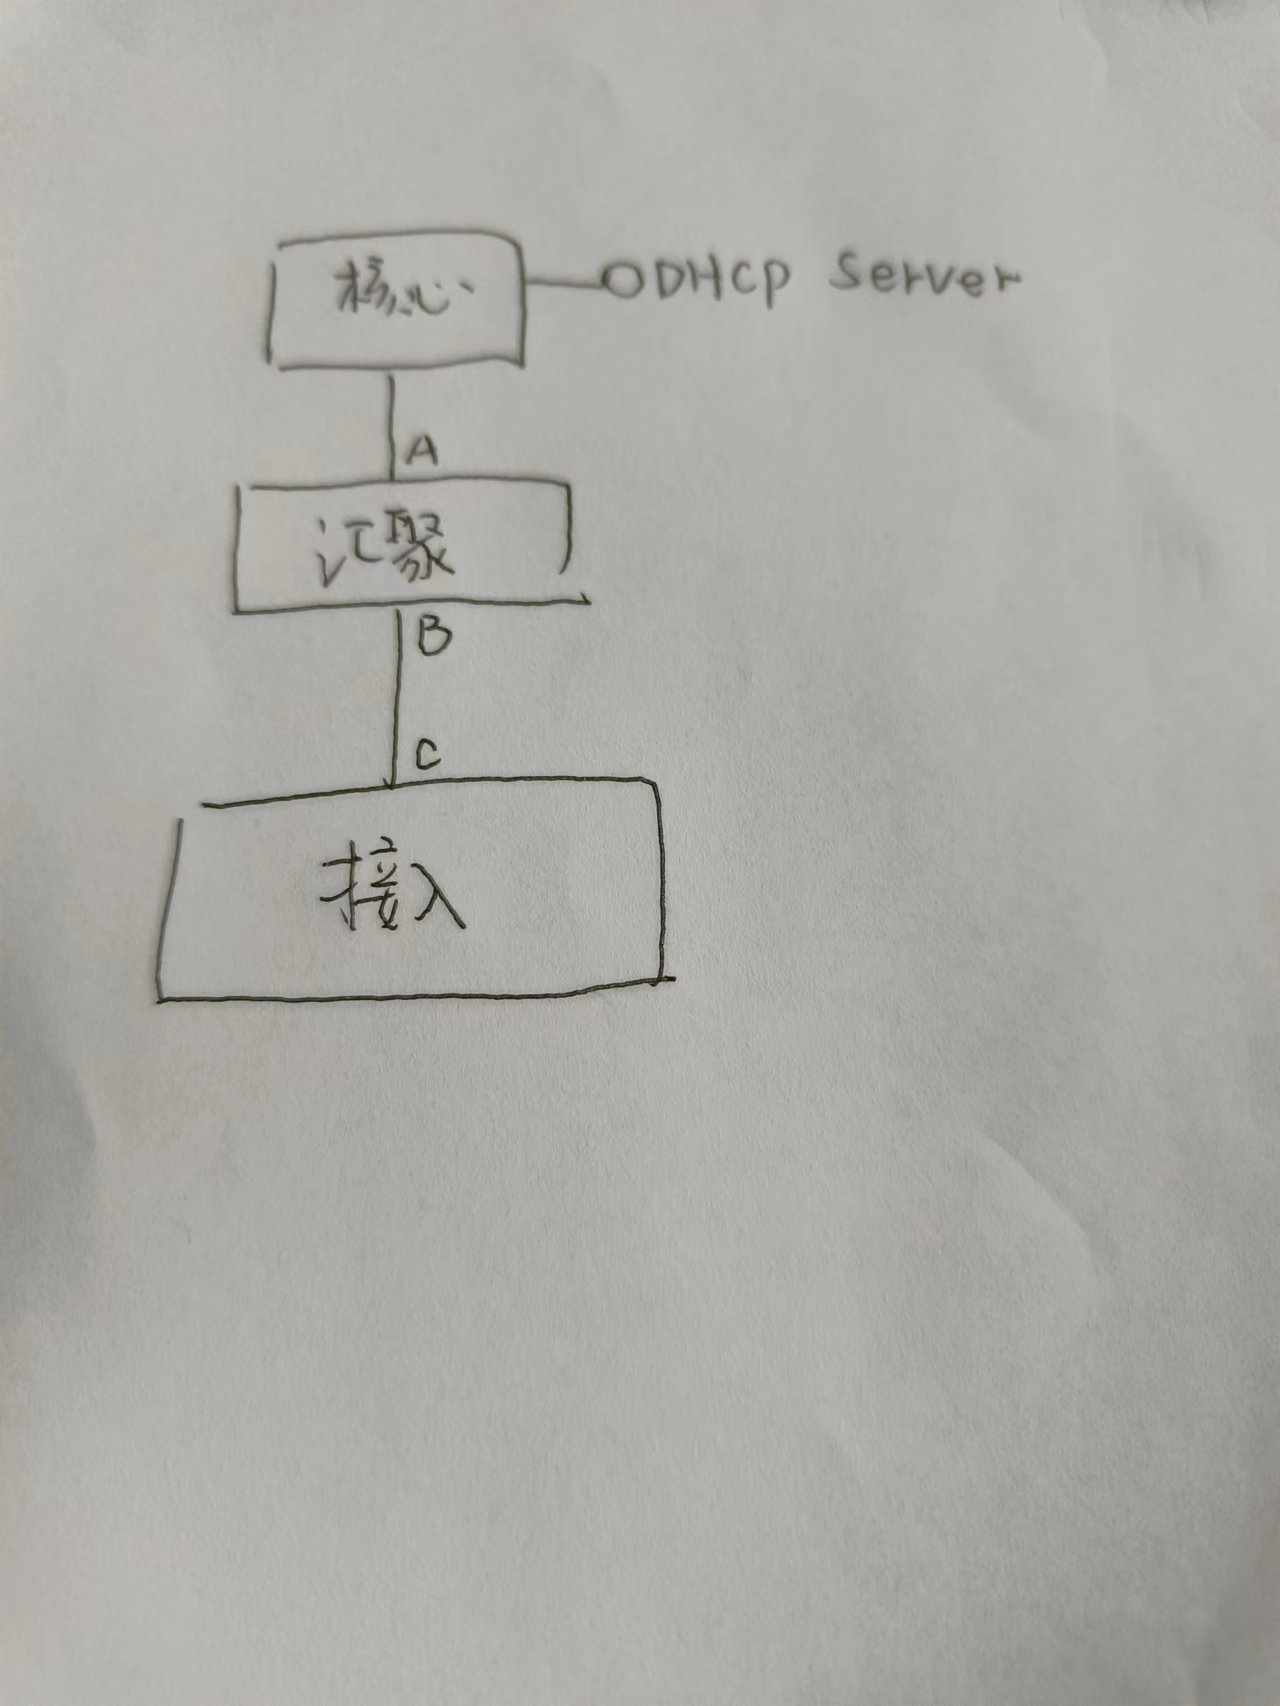 核心 DHCP Server
A
汇聚
B
C
接入